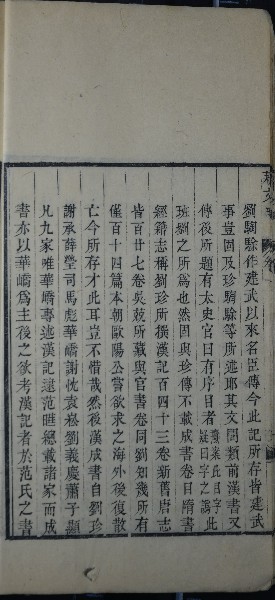 劉騊駼作建武以來名臣傳今此記所存皆建武
事豈固及珍騊駼等所述耶其文間類前漢書又
傳後所題有太史官曰有序目者蕭案此目字此疑曰字之譌
班劉之所爲也然固與珍傳不載成書卷目隋書
經籍志稱劉珍所撰漢記百四十三卷新舊唐志
皆百廿七卷吳兢所藏與官書卷同劉知幾所有
僅百十四篇本朝歐陽公嘗欲求之海外後復散
亡今所存才此耳豈不惜哉然後漢成書自劉珍
謝承薛瑩司馬彪華嶠謝忱袁崧劉義慶蕭子顯
凡九家唯華嶠專述漢記遠范曄總載諸家而成
書亦以華嶠爲主後之欲考漢記者於范氏之書